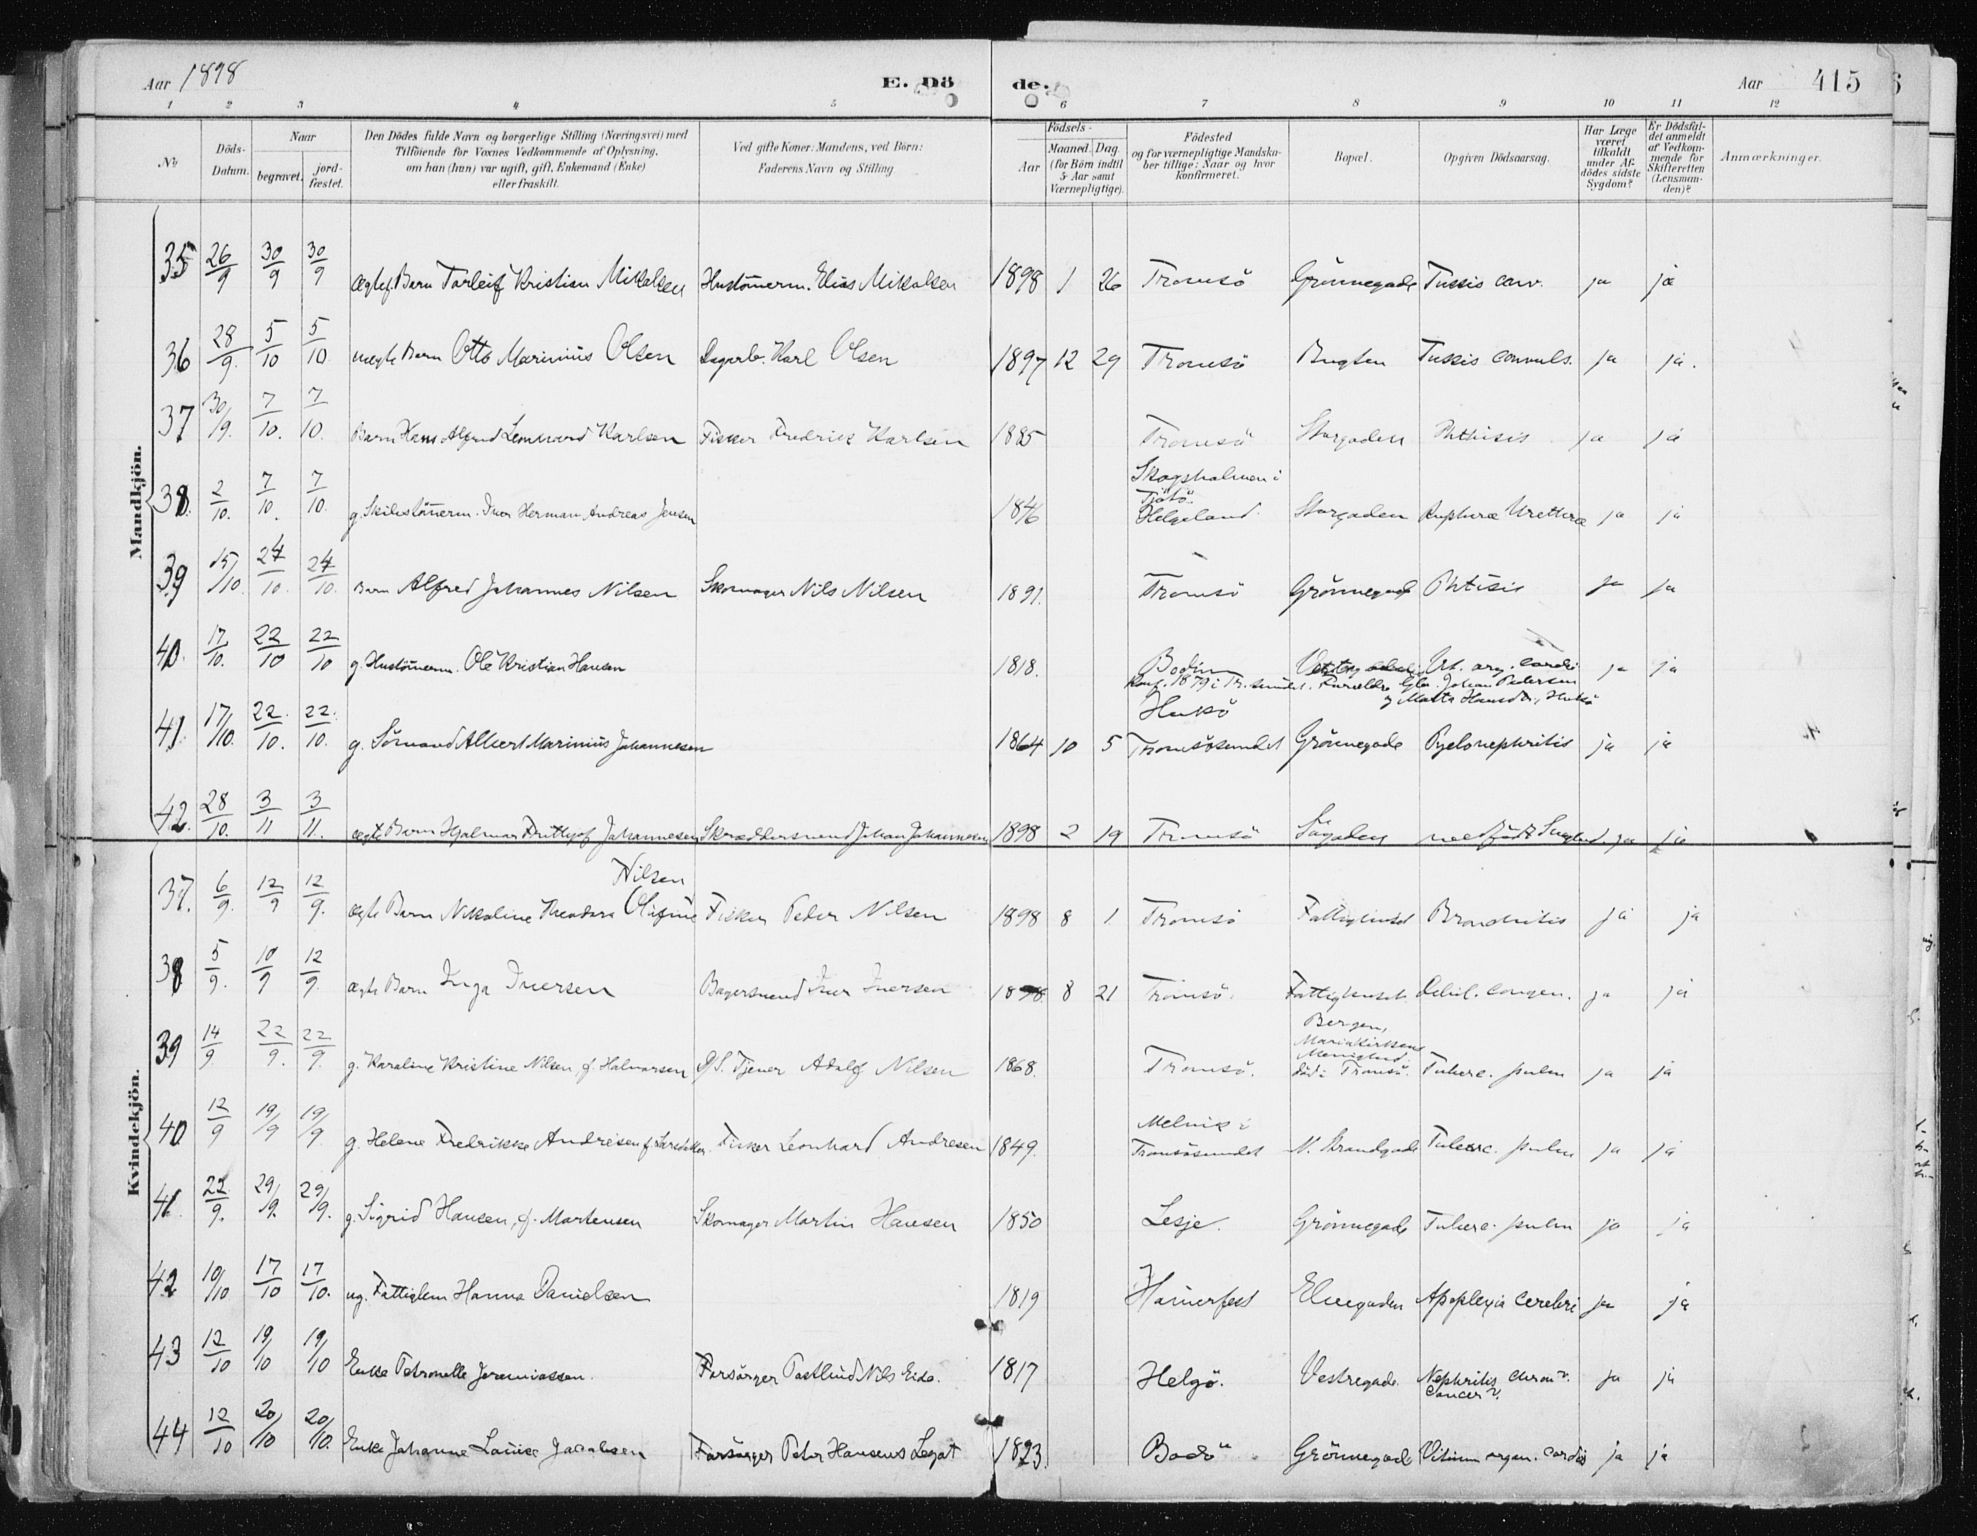 Aar 1898 E. Dö de. Aar 415
1 2 3 4 5 6 7 8 9 10 11 12
No Döds-Datum. Naar begravet. jord-fæstet. Den Dödes fulde Navn og borgerlige Stilling (Næringsvei) med Tilföiende for Voxnes Vedkommende af Oplysning, om han (hun) var ugift, gift, Enkemand (Enke) eller fraskilt. Ved gifte Koner: Mandens, ved Börn: Faderens Navn og Stilling Födsels- Aar Maaned. Dag. (for Börn indtil 5 Aar samt Værnepligtige). Födested og for værnepligtige Mandska-ber tillige: Naar og hvor konfirmeret. Bopæl. Opgiven Dödsaarsag. Har Læge været tilkaldt under Af-dödes sidste Sygdom? Er Dödsfal-det anmeldt af Vedkom-mende for Skifteretten (Lensman-den)? Anmærkninger.
Mandkjön.
35 26/9 30/9 30/9 ægtef. Barn Torleif Kristian Mikalsen Hustömerm. Elias Mikalsen 1898 1 26 Tromsö Grönnegade Tussis conv. ja ja
36 28/9. 5/10 5/10 uægte Barn Otto Marinius Olsen Dagarb. Karl Olsen 1897 12 29 Tromsö Bugten Tussis convuls. ja ja.
37 30/9. 7/10. 7/10. Barn Hans Alfred Lennard Karlsen Fisker Fredrik Karlsen 1885 Tromsö Storgaden Phthisis ja ja
38. 2/10. 7/10. 7/10. g. Skibstömerm. Iver Herman Andreas Jensen 1846 Skogsholmen i Tjötö. Helgeland. Storgaden Ruptura Urethrae ja ja
39 15/10. 24/10. 24/10. Barn Alfred Johannes Nilsen Skomager Nils Nilsen 1891. Tromsö Grönnegade Phtisis ja ja
40. 17/10. 22/10 22/10 g. Hustömerm. Ole Kristian Hansen 1818. Bodin Vit. org. cordis ja ja
Konf. 1879 i Tr.sundet. Forældre Johan Pedersen
og Marta Hansd.
41 17/10. 22/10. 22/10. g. Sömand Albert Marinius Johannesen 1864 10 5 Tromsösundet Grönnegade Pyelonephritis ja ja
42. 28/10. 3/11 3/11. ægte Barn Hjalmar Frithjof Johannesen Skræddersvend Johan Johannesen 1898 2 19 Tromsö Sögaden medfödt ja ja
Kvindekjön.
37. 6/9. 12/9 12/9. ægte Barn Nikoline Theodora Olufine Nilsen Fisker Peder Nilsen 1898 8 1 Tromsö Fattighuset Bronchitis ja ja
38 5/9. 10/9 12/9 ægte Barn Inga Iversen Bagersvend Iver Iversen 1898 8 21 Tromsö. Fattighuset. debil. congen. ja ja
39 14/9. 22/9. 22/9. g. Karoline Kristine Nilsen, f. Halvorsen D/S. Tjener Adolf Nilsen 1868. Tromsö. Bergen, Mariakirkens Menighed. död i Tromsö. Tuberc. pulm ja ja
40 12/9 19/9 19/9 g. Helene Fredrikke Andresen Fisker Leonhard Andresen 1849. Melvik i Tromsösundet N. Strandgade Tuberc. pulm ja ja
41. 22/9. 29/9. 29/9. g. Sigrid Hansen, f. Martensen Skomager Martin Hansen 1850 Lesje. Grönnegade Tuberc. pulm ja ja
42 10/10 17/10 17/10. ug. Fattiglem Hanna Danielsen 1819 Hamerfest Elvegaden Apoplexia cerebri ja ja
43 12/10 19/10 19/10 Enke Petronelle Jeremiassen. Forsörger Postbud Nils Eide. 1817 Helgö. Vestregade. Nephritis chron. Cancer v. ja ja
44 12/10 20/10 20/10. Enke Johanne Louise Jacobsen Forsörger Peter Hansens Legat 1823. Bodö Grönnegade Vitium organ. cordis ja ja